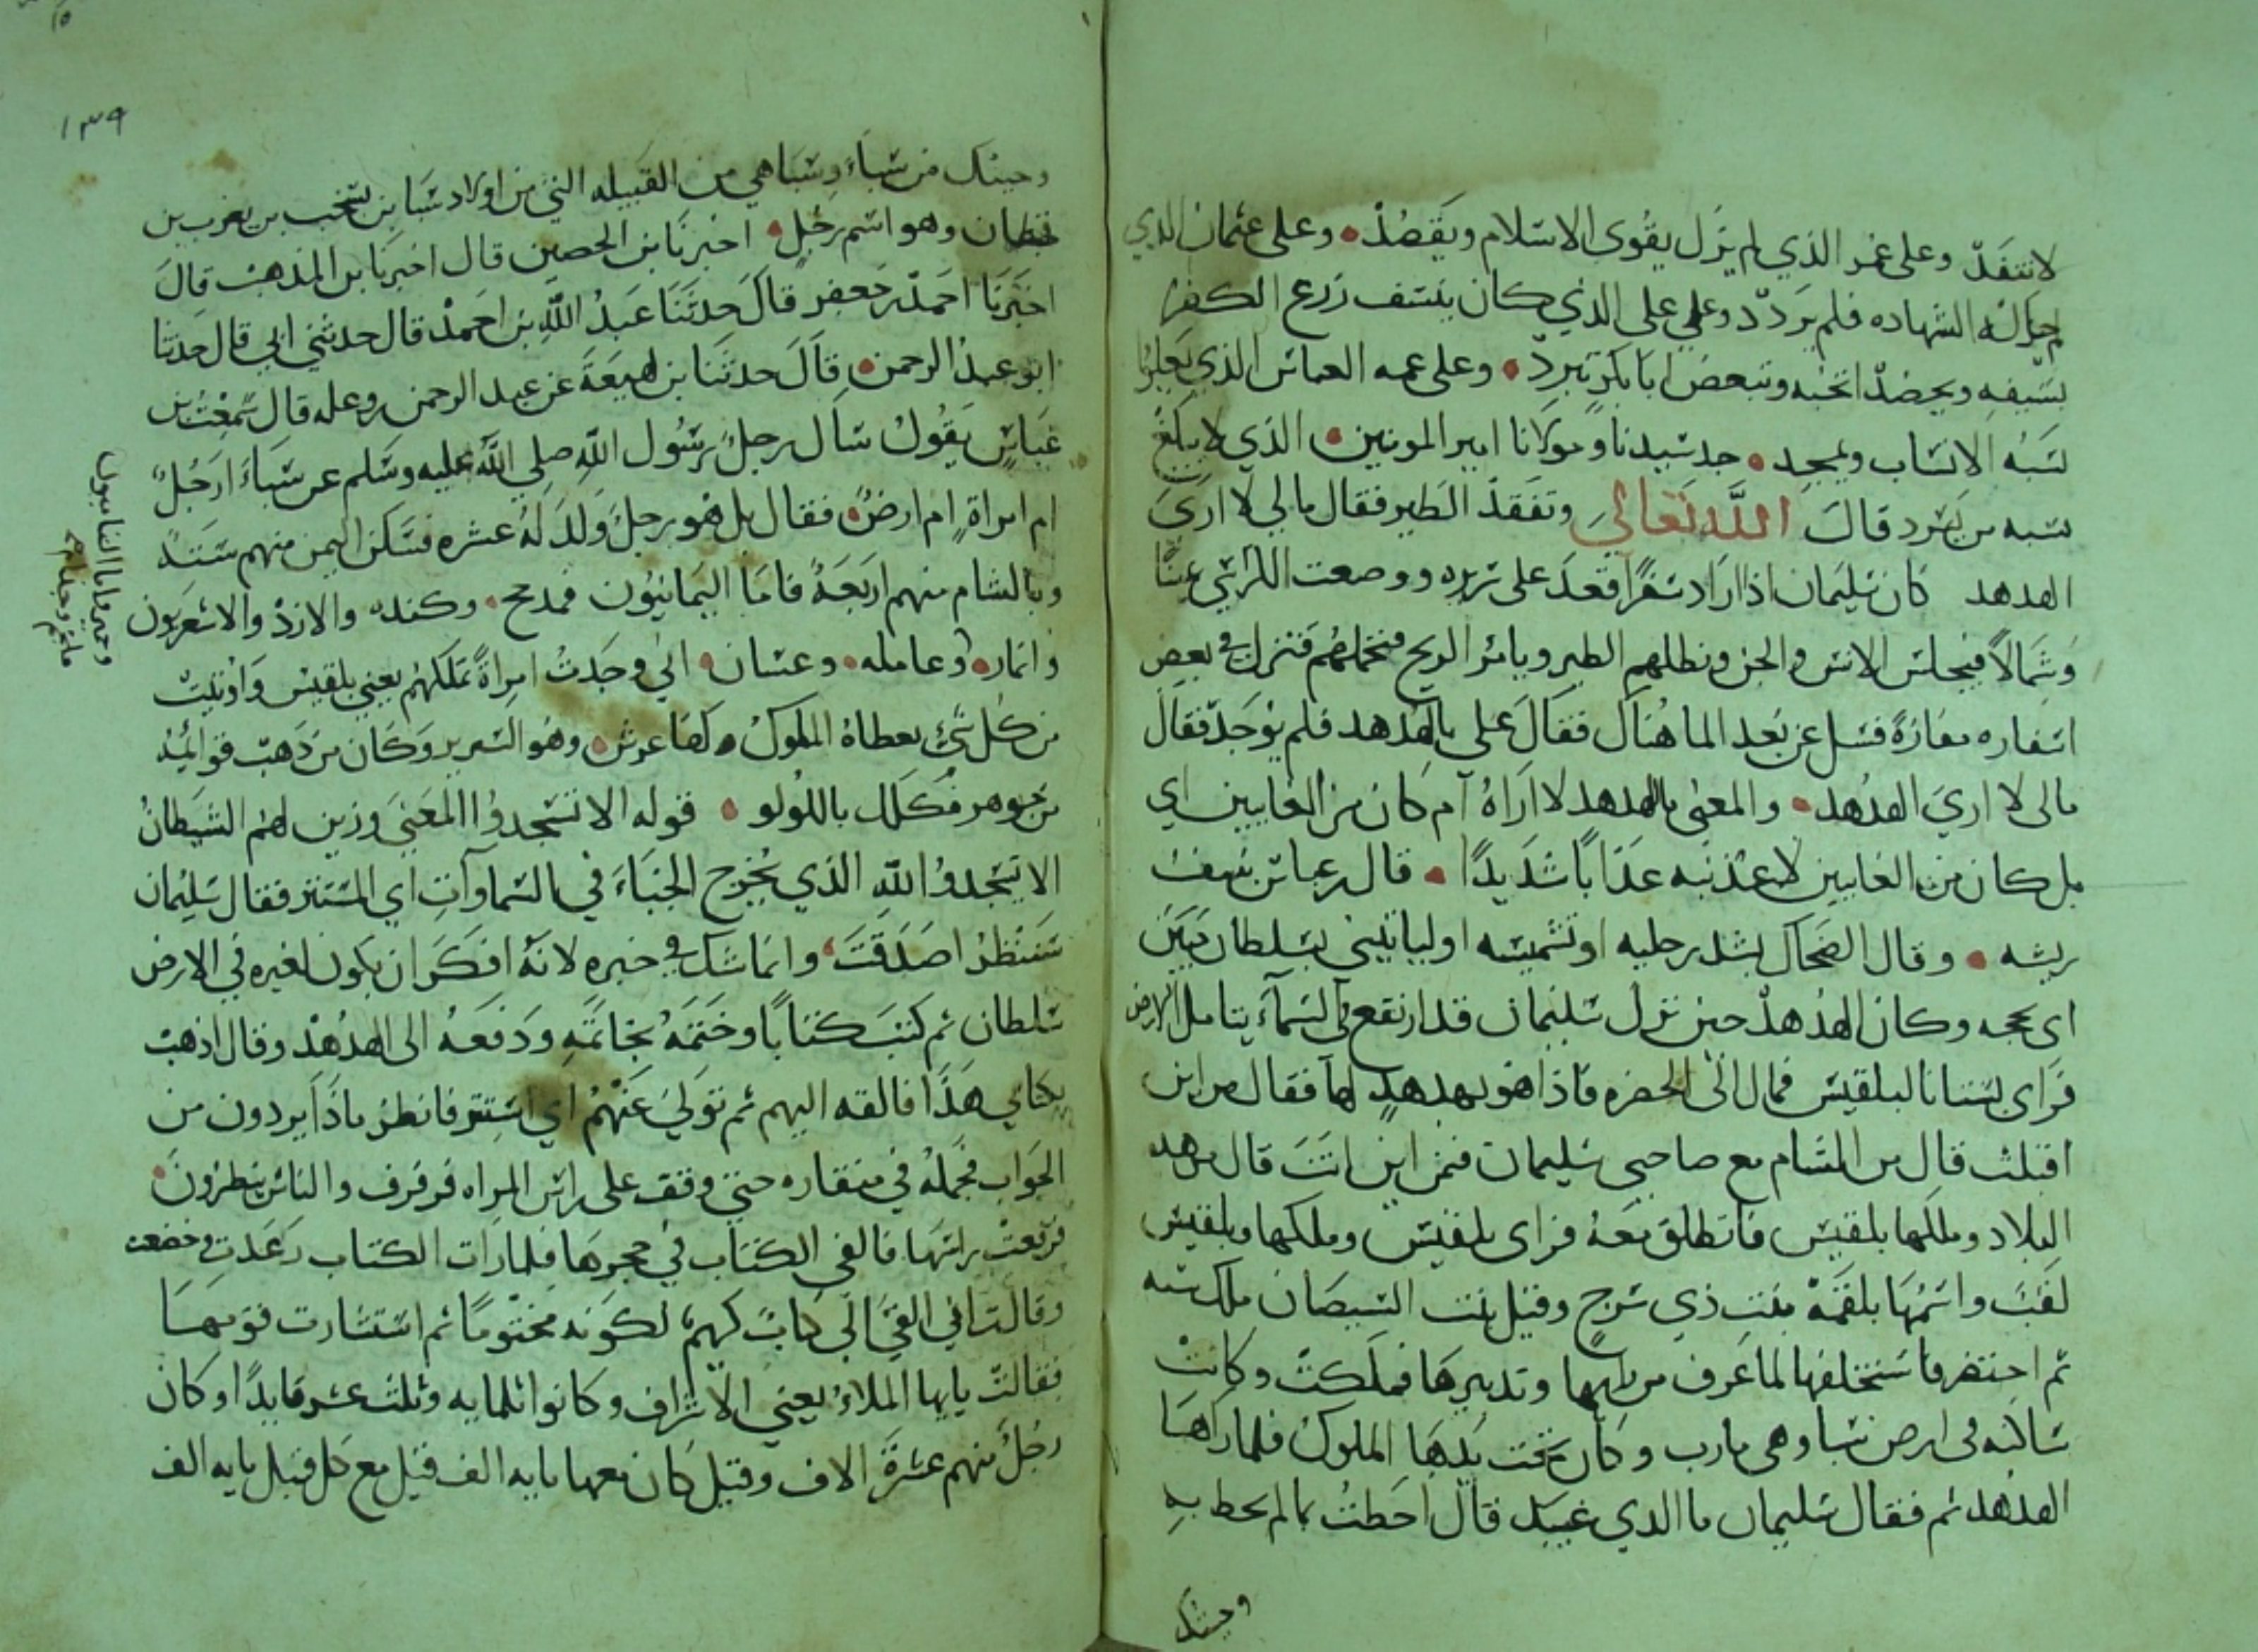 لا تنفد وعلى عمر الذي لم يزل يقوى الاسلام ويقصد وعلى عثمان الذي
الشهاده فلم يردد وعلى علي الذي كان ينسف زرع الكفر
بسيفه ويحصد اتحبه وتبعض ابا بكر تبرد وعلى عمه العباس الذي
نسبه الانساب ويمجد جد سيدنا ومولانا امير المومنين الذي لا يبلغ
نسبه من يسرد قال الله تعالى وتفقد الطير فقال ما لي لا ارى
الهدهد كان سليمان اذا اراد سفرا قعد على سريره ووضعت الكراسي يمينا
وشمالا فيجلس الانس والجن وتظلهم الطير ويامر الريح فتحملهم فنزل في بعض
اسفاره مفازة فسل عن بعد الما هناك فقال علي بالهدهد فلم يوجد فقال
مالى لا ارى الهدهد والمعنى ما للهدهد لا اراه ام كان من الغايبين اي
بل كان من الغايبين لاعذبنه عذابا شديدا قال ابن عباس ينتف
ريشه وقال الضحاك يشد رجليه او تشميسه او لياتيني بسلطان مبين
اى بحجه وكان الهدهد حين نزل سليمان قد ارتفع في السماء يتامل الارض
فراى بستانا لبلقيس فمال الى الخضره فاذا هو بهدهد لها فقال من اين
اقبلت قال من الشام مع صاحبي سليمان فمن اين انت قال من هذه
البلاد وملكها بلقيس فانطلق معه فراى بلقيس وملكها وبلقيس
لقب واسمها بلقمة بنت ذي شرح وقيل بنت الشيصان ملك سبه
ثم احتضر فاستخلفها لما عرف من وتدبيرها فملكت وكانت
ساكنه فى ارض سبا وهى مارب وكان تحت يدها الملوك فلما راها
الهدهد ثم فقال سليمان ما الذي غيبك قال احطت بما لم تحط به
وجيتك
١٣٩
وجيتك من سباء وسبا هي من القبيله التي من اولاد سبا بن يشخب بن يعرب بن
قحطان وهو اسم رجل اخبرنا ابن الحصين قال اخبرنا بن المذهب قال
اخبرنا احمد بن جعفر قال حدثنا عبد الله بن احمد قال حدثني ابي قال حدثنا
ابو عبد الرحمن قال حدثنا بن لهيعة عن عبد الرحمن بن وعله قال سمعت بن
عباس يقول سال رجل رسول الله صلى الله عليه وسلم عن سباء ارجل
ام امراة ام ارض فقال بل هو رجل ولد له عشره فسكن اليمن منهم ستة
وبالشام منهم اربعة فاما اليمانيون فمذحج وكنده والازد والاشعريون
وانمار وعامله وغسان انى وجدت امراة تملكهم يعني بلقيس واوتيت
من كل شي يعطاه الملوك ولها عرش وهو السرير وكان من ذهب قوايمه
من جوهر مكلل باللولو قوله الا تسجدوا المعنى وزين لهم الشيطان
الا يسجدوا لله الذي يخرج الخباء في السماوات اي المستتر فقال سليمان
سننظر اصدقت وانما شك في خبره لانه انكر ان يكون لغيره في الارض
سلطان ثم كتب كتابا وختمه بخاتمه ودفعه الى الهدهد وقال اذهب
بكتابي هذا فالقه اليهم ثم تولى عنهم اي استتر فانظر ماذا يردون من
الجواب فحمله في منقاره حتى وقف على راس المراه فرفرف والناس ينظرون
فرفعت راسها فالقى الكتاب في حجرها فلما رات الكتاب رعدت وخضعت
وقالت اني القي الي كتاب كريم لكونه مختوما ثم استشارت قومها
فقالت يايها الملاء يعني الاشراف وكانوا ثلمايه وثلث عشر قايدا وكان
رجل منهم عشرة الاف وقيل كان معها مايه الف قيل مع كل قيل مايه الف
وحمير واما الشاميون
فلخم وجذام